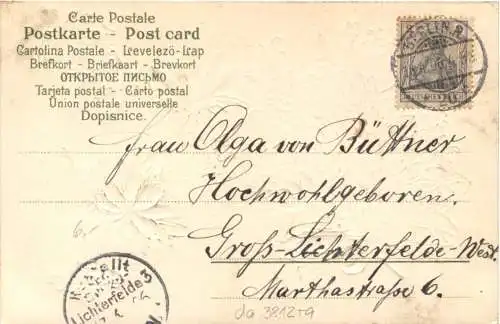 Carte Postale
Postkarte - Post card
Cartolina Postale - Levelező-Lap
Brefkort - Briefkaart - Brevkort
ОТКРЫТОЕ ПИСЬМО
Tarjeta postal - Carto postal
Union postale universelle
Dopisnice.
BERLIN
Frau Olga von Büttner
Hochwohlgeboren.
Groß-Lichterfelde-West.
Marthastraße 6.
6,-
Bestellt
Lichterfelde
da 3812+9